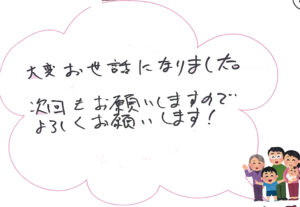 大変お世話になりました。
次回もお願いしますので
よろしくお願いします！